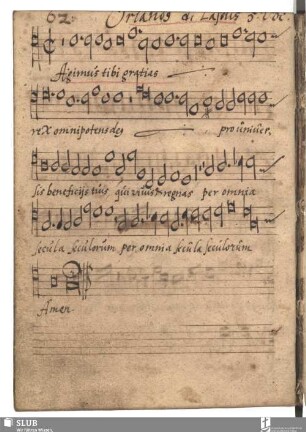 62. Orlandi di Lassus 5. Voc.
Agimus tibi gratias
rex omnipotens deus pro univer.
sis beneficijs tuis qui vivis et regnas per omnia
secula seculorum per omnia secula seculorum
Amen
SLUB